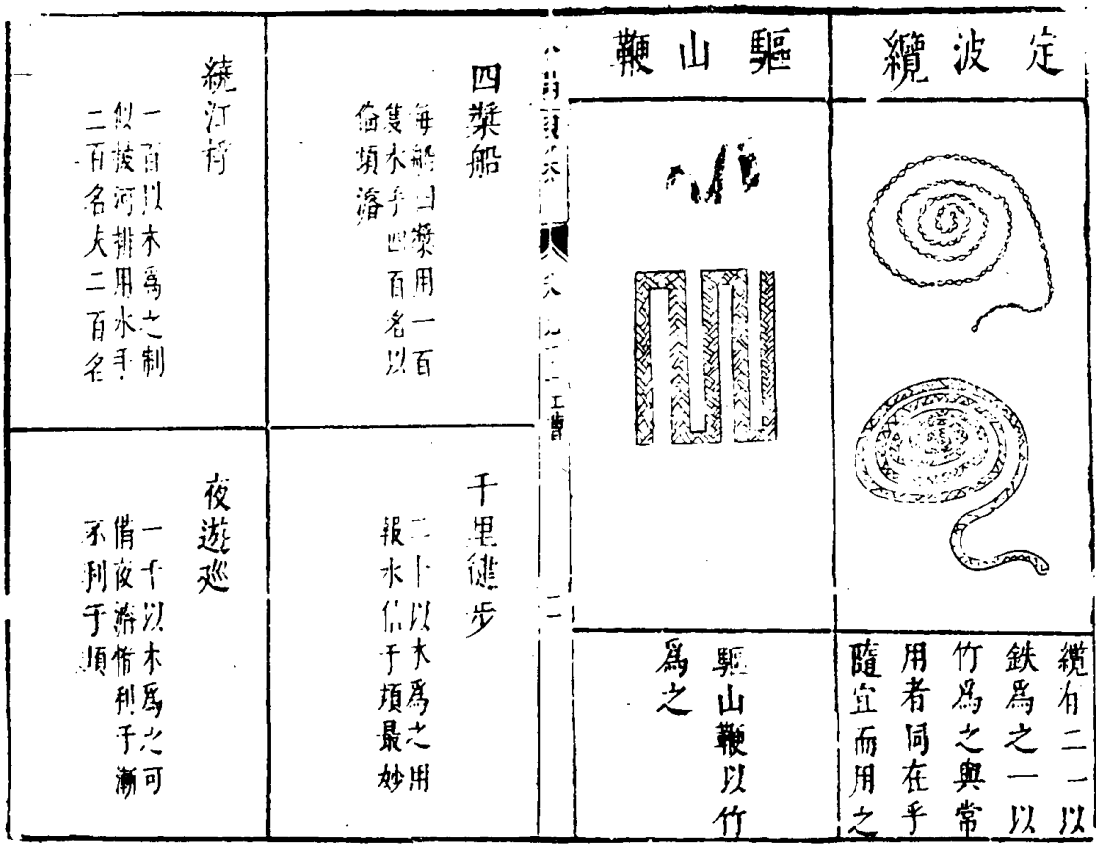 定波纜
纜有二一以
鉄為之一以
竹為之與常
用者同在乎
隨宜而用之
驅山鞭
驅山鞭以竹
為之
工曹
二
四槳船
每船四槳用一百
隻水手四百名以
俻順溜
千里健步
二十以木為之用
報水信于順最妙
繞江桴
一百以木為之制
似拔河排用水手
二百名夫二百名
夜遊巡
一十以木為之可
俻夜游俻利于漸
不利于順